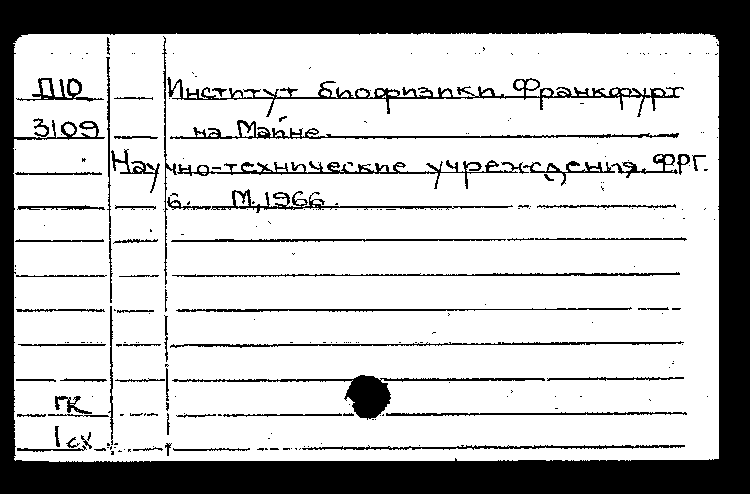 П10 Институт биофизики. Франкфурт
3109 на Майне.
Научно-технические учреждения. ФРГ.
6. М., 1966.
ГК
1сх